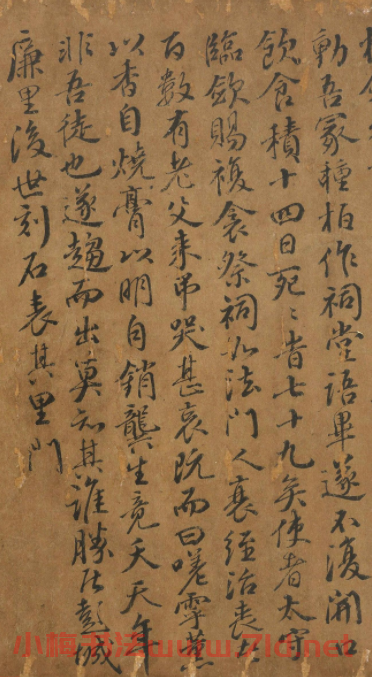 動吾冢種柏作祠堂語畢遂不復開口
飲食積十四日死〻者七十九矣使者太守
臨斂賜複衾祭祠如法門人衰絰治喪者
百數有老父來弔哭甚哀既而曰嗟虖薰
以香自燒膏以明自銷龔生竟夭天年
非吾徒也遂趨而出莫知其誰勝居彭城
廉里後世刻石表其里門
小梅书法www.7ld.net